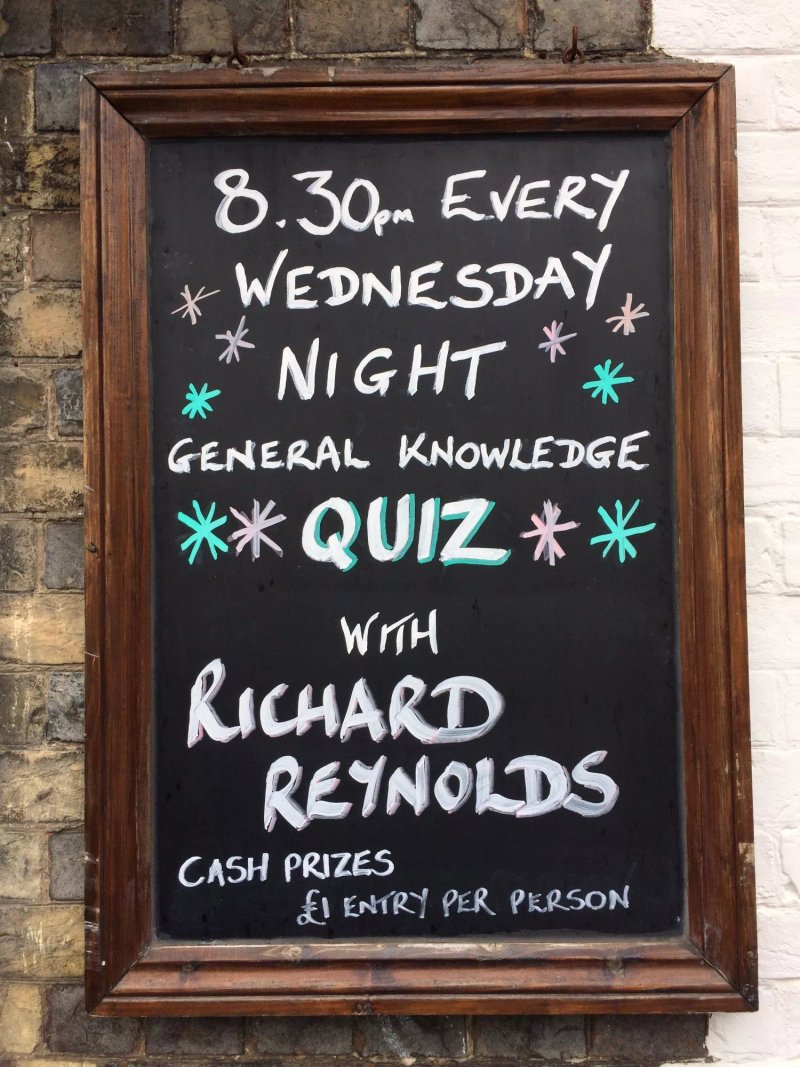 8.30pm EVERY
WEDNESDAY
NIGHT
GENERAL KNOWLEDGE
QUIZ
WITH
RICHARD
REYNOLDS
CASH PRIZES
£1 ENTRY PER PERSON